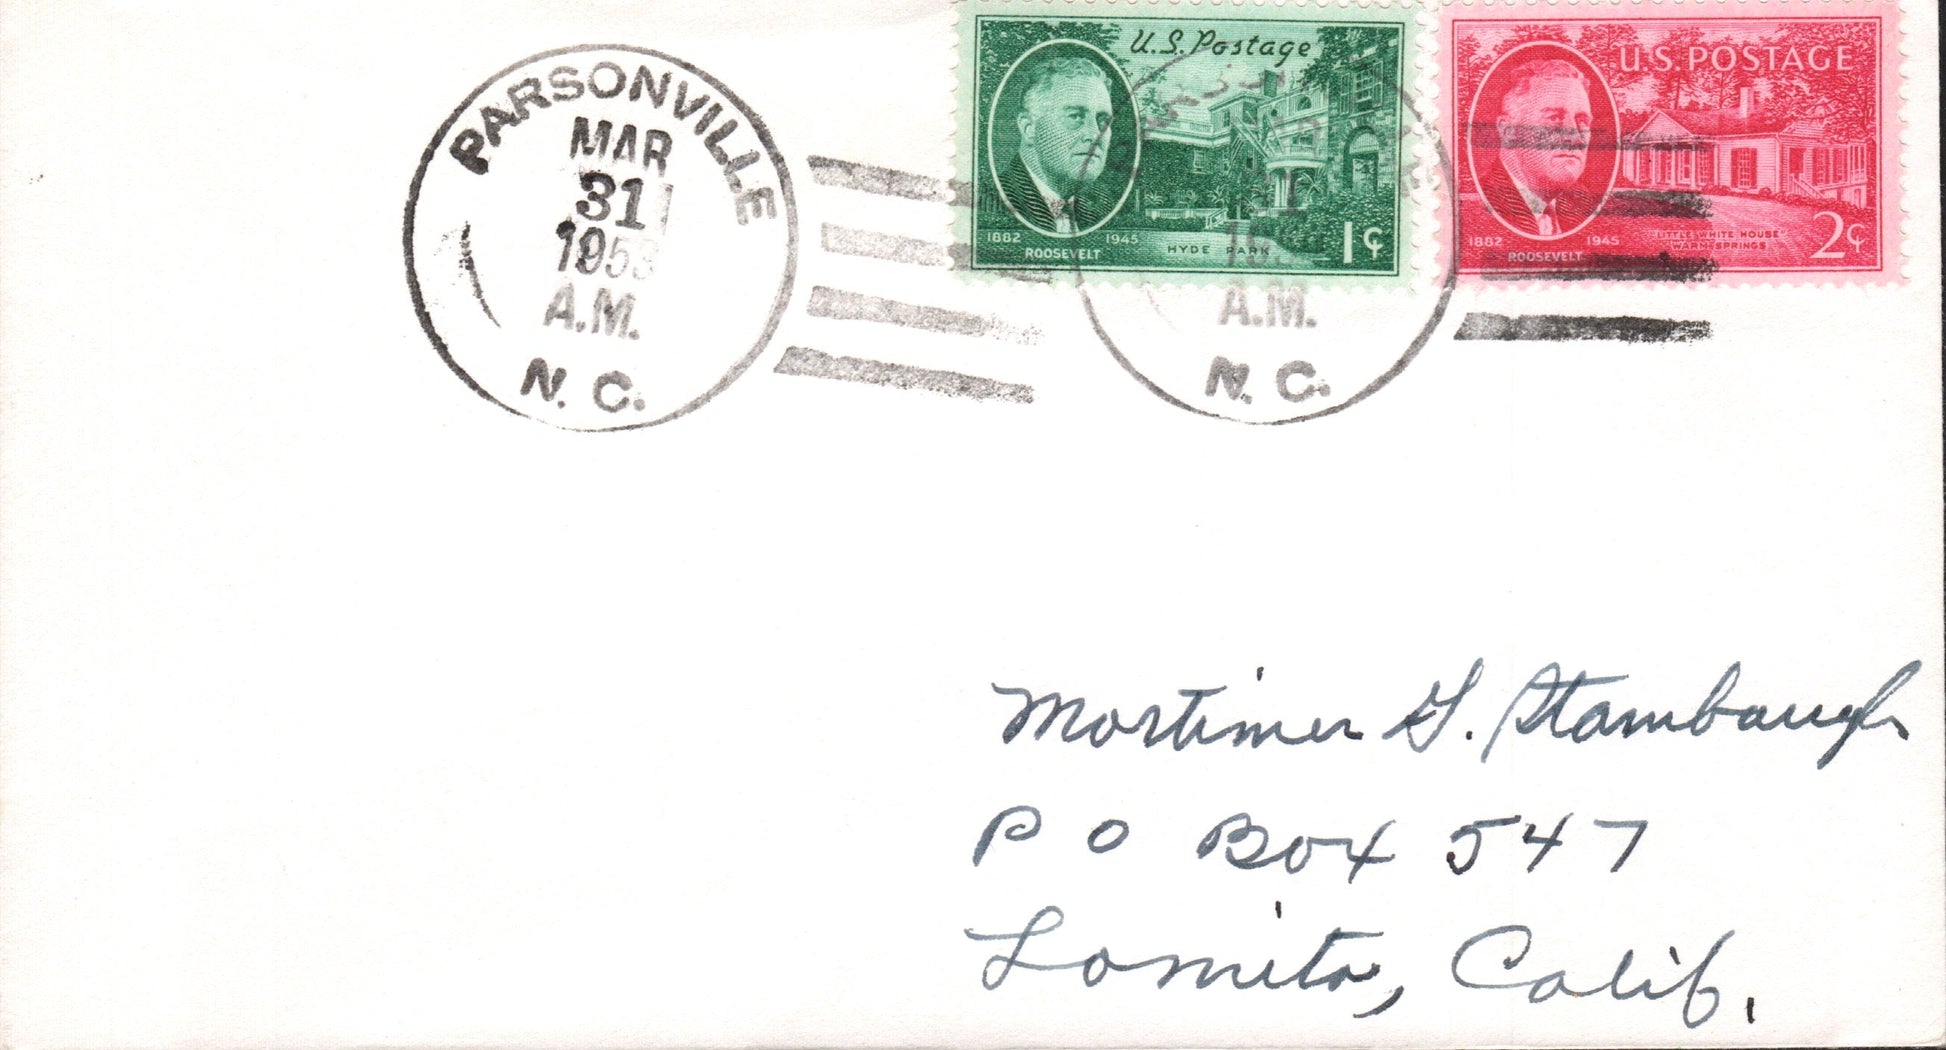 PARSONVILLE
MAR
31
1953
A.M.
N. C.
U.S. Postage
1882 1945
ROOSEVELT
HYDE PARK
1¢
31
A.M.
N. C.
U.S. POSTAGE
1882 1945
ROOSEVELT
"LITTLE WHITE HOUSE"
WARM SPRINGS
2¢
Mortimer G. Stambaugh
P O Box 547
Lomita, Calif.